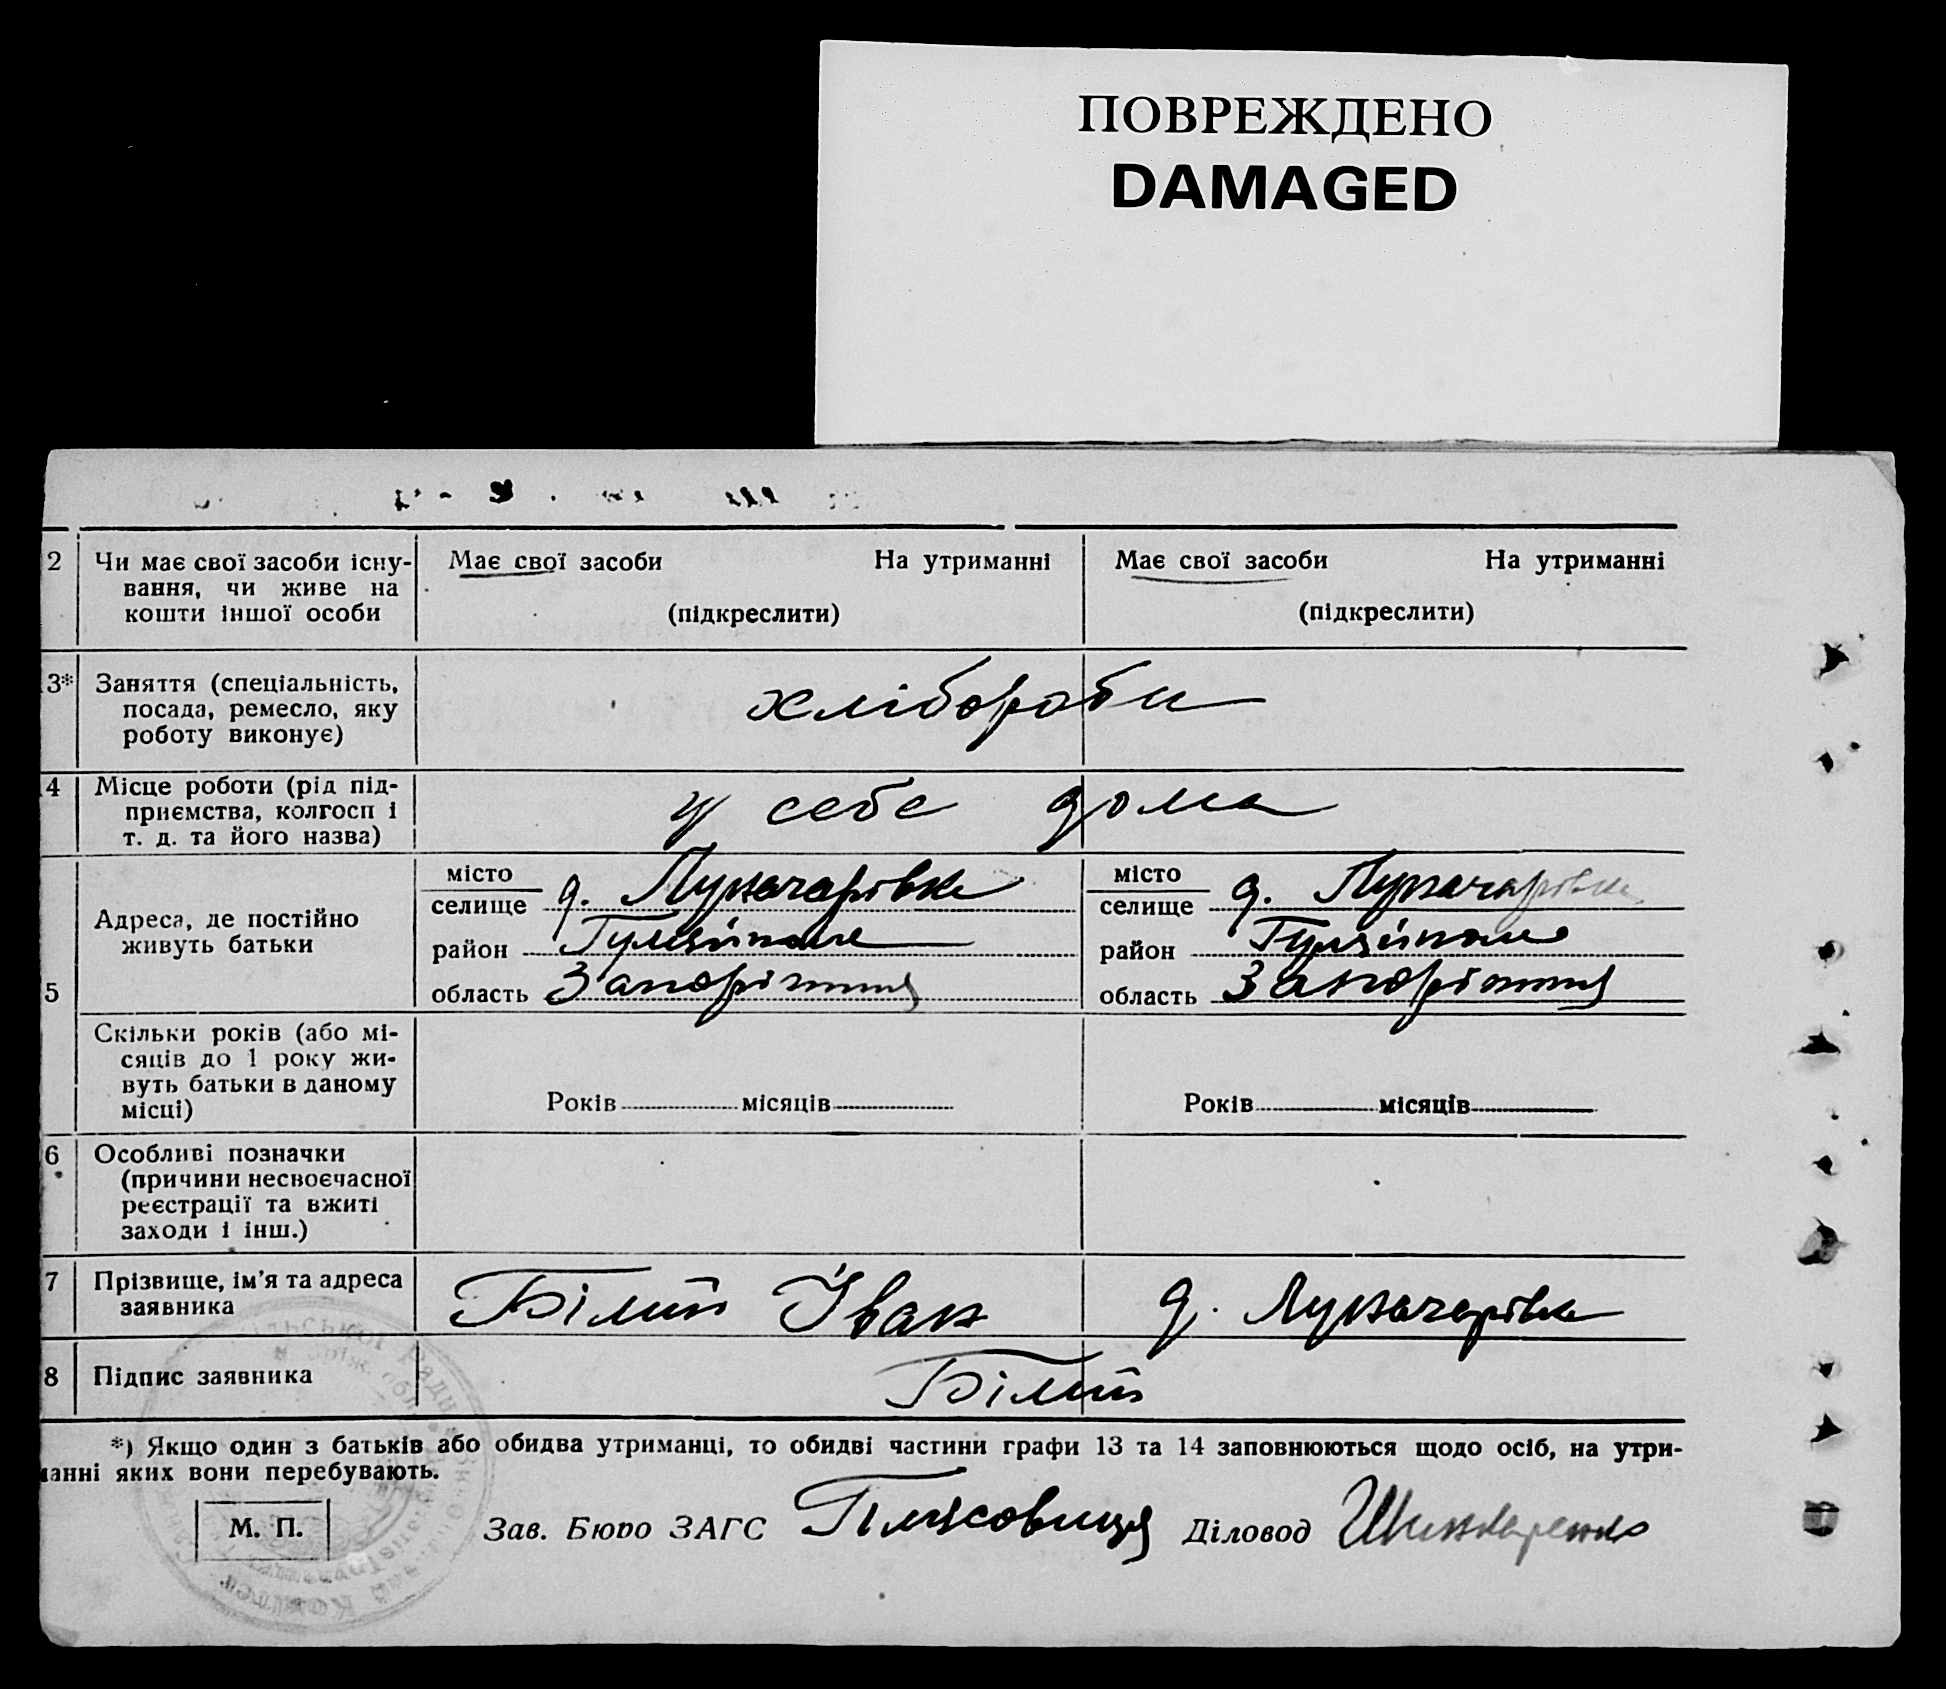 ПОВРЕЖДЕНО
DAMAGED
2 Чи має свої засоби існу-
вання, чи живе на
кошти іншої особи
Має свої засоби На утриманні
(підкреслити)
Має свої засоби На утриманні
(підкреслити)
3* Заняття (спеціальність,
посада, ремесло, яку
роботу виконує)
хлібороби
4 Місце роботи (рід під-
приємства, колгосп і
т. д. та його назва)
у себе дома
5
Адреса, де постійно
живуть батьки
місто
селище д. Луначарівка
район Гуляйполе
область Запоріжжя
місто
селище д. Луначарівка
район Гуляйполе
область Запоріжжя
Скільки років (або мі-
сяців до 1 року жи-
вуть батьки в даному
місці)
Років місяців
Років місяців
6 Особливі позначки
(причини несвоєчасної
реєстрації та вжиті
заходи і інш.)
7 Прізвище, ім'я та адреса
заявника
Білий Іван д. Луначарівка
8 Підпис заявника
Білий
*) Якщо один з батьків або обидва утриманці, то обидві частини графи 13 та 14 заповнюються щодо осіб, на утри-
манні яких вони перебувають.
М. П.
Зав. Бюро ЗАГС Діловод